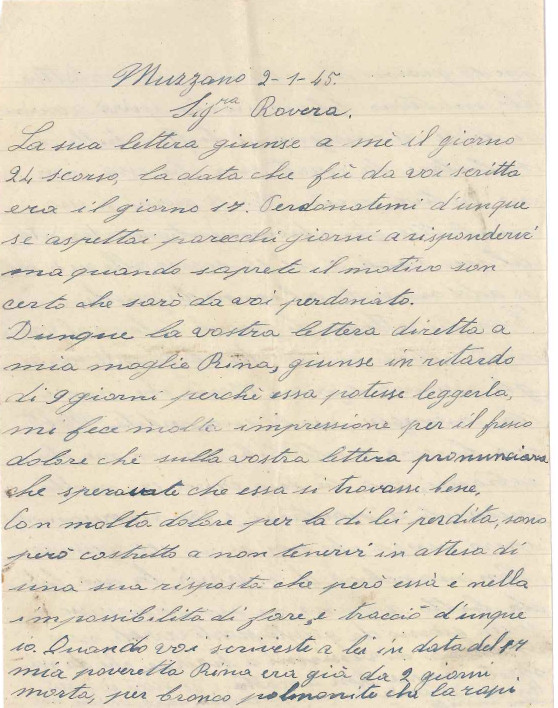 Muzzano 2-1-45.
Sig.ra Rovera.
La sua lettera giunse a mè il giorno
24 scorso, la data che fù da voi scritta
era il giorno 17. Perdonatemi d'unque
se aspettai parecchi giorni a rispondervi
ma quando saprete il motivo son
certo che sarò da voi perdonato.
Dunque la vostra lettera diretta a
mia moglie Rina, giunse in ritardo
di 9 giorni perchè essa potesse leggerla,
mi fece molta impressione per il fresco
dolore che sulla vostra lettera pronunciava
che speravate che essa si trovasse bene.
Con molto dolore per la di lei perdita, sono
però costretto a non tenervi in attesa di
una sua risposta che però essà è nella
impossibilita di fare, e tracciò d'unque
io. Quando voi scriveste a lei in data del 17
mia poveretta Rina era già da 2 giorni
morta, per bronco polmonite che la rapì